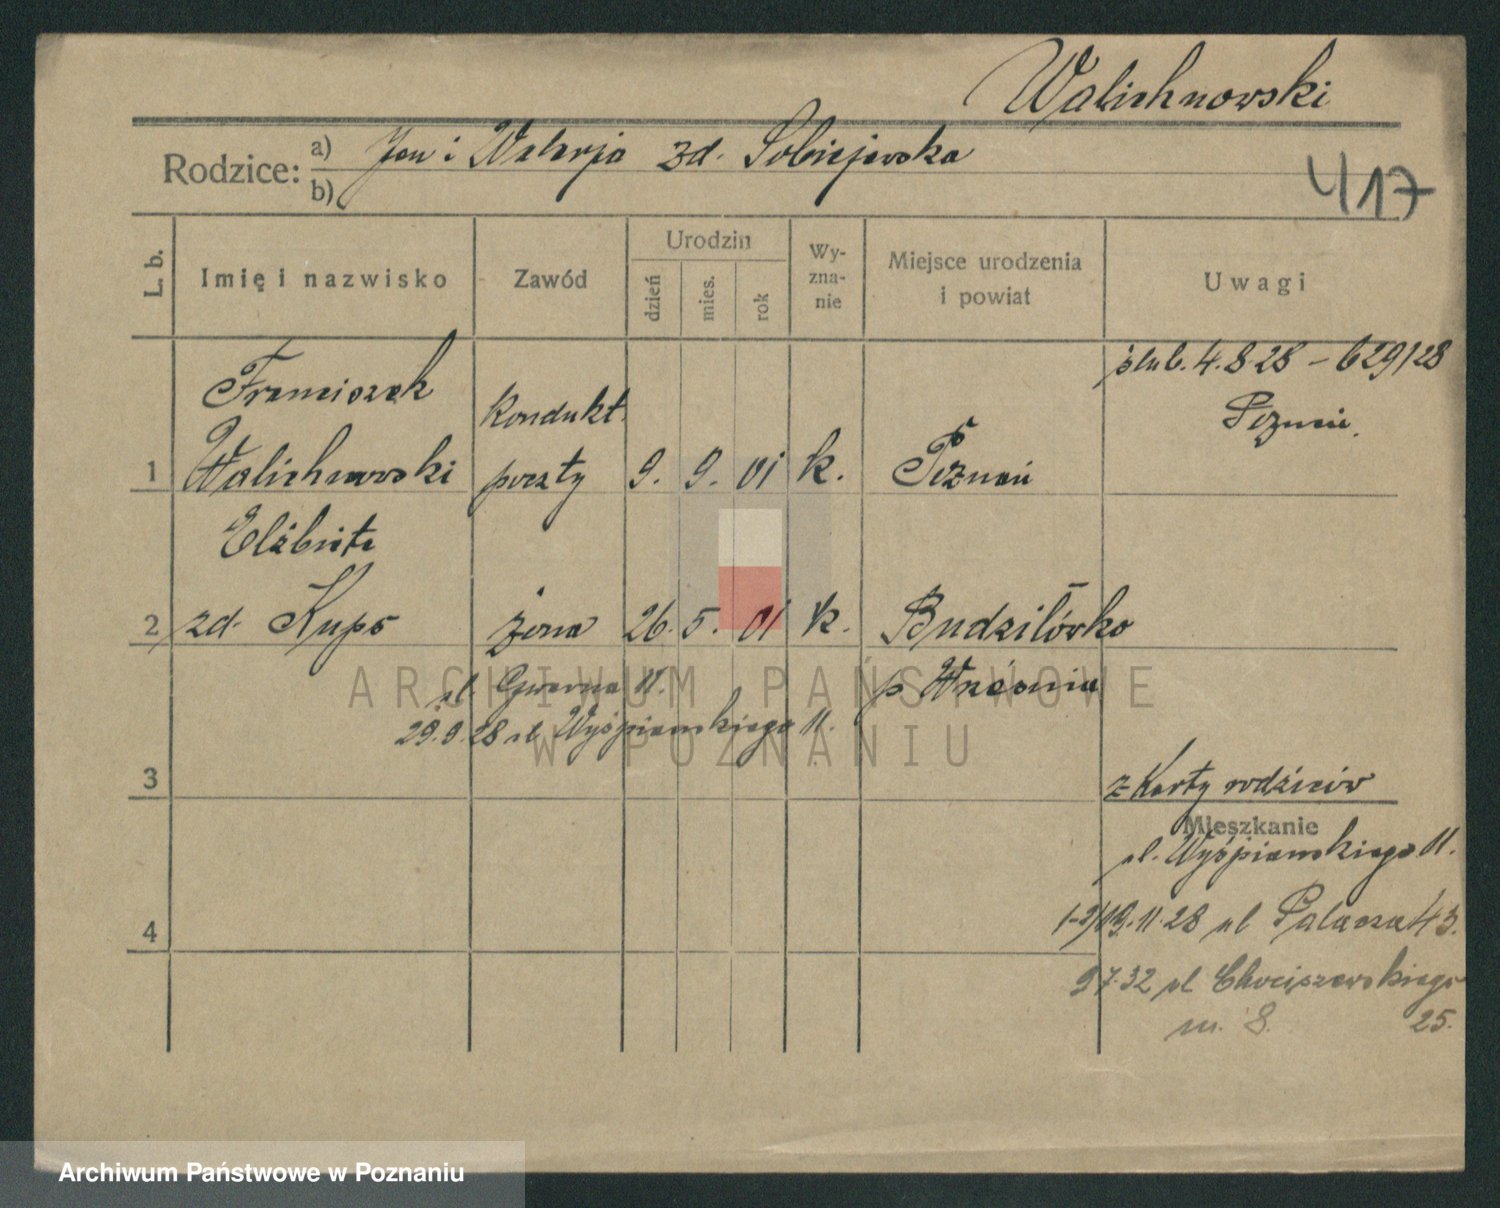 Walichnowski
Rodzice: a) Jan i Walerja zd. Sobiejewska
b)
417
L. b.
Imię i nazwisko
Zawód
Urodzin
dzień
mies.
rok
Wy-
zna-
nie
Miejsce urodzenia
i powiat
Uwagi
ślub. 4.8.28 – 629/28
Poznań.
Franciszek
Kondukt.
1 Walichnowski poczty 9. 9. 01 k. Poznań
Elżbieta
2 zd. Kups żona 26. 5. 01 k. Budziłówko
p Września
ul. Gwarna 11.
29.9.28 ul Wyśpianskiego 11.
ARCHIWUM PAŃSTWOWE
W POZNANIU
3
z Karty rodziców
Mieszkanie
ul. Wyśpianskiego 11.
19.11.28 ul Palacza 43.
4
97.32 ul Chociszewskiego
m. 8. 25.
Archiwum Państwowe w Poznaniu